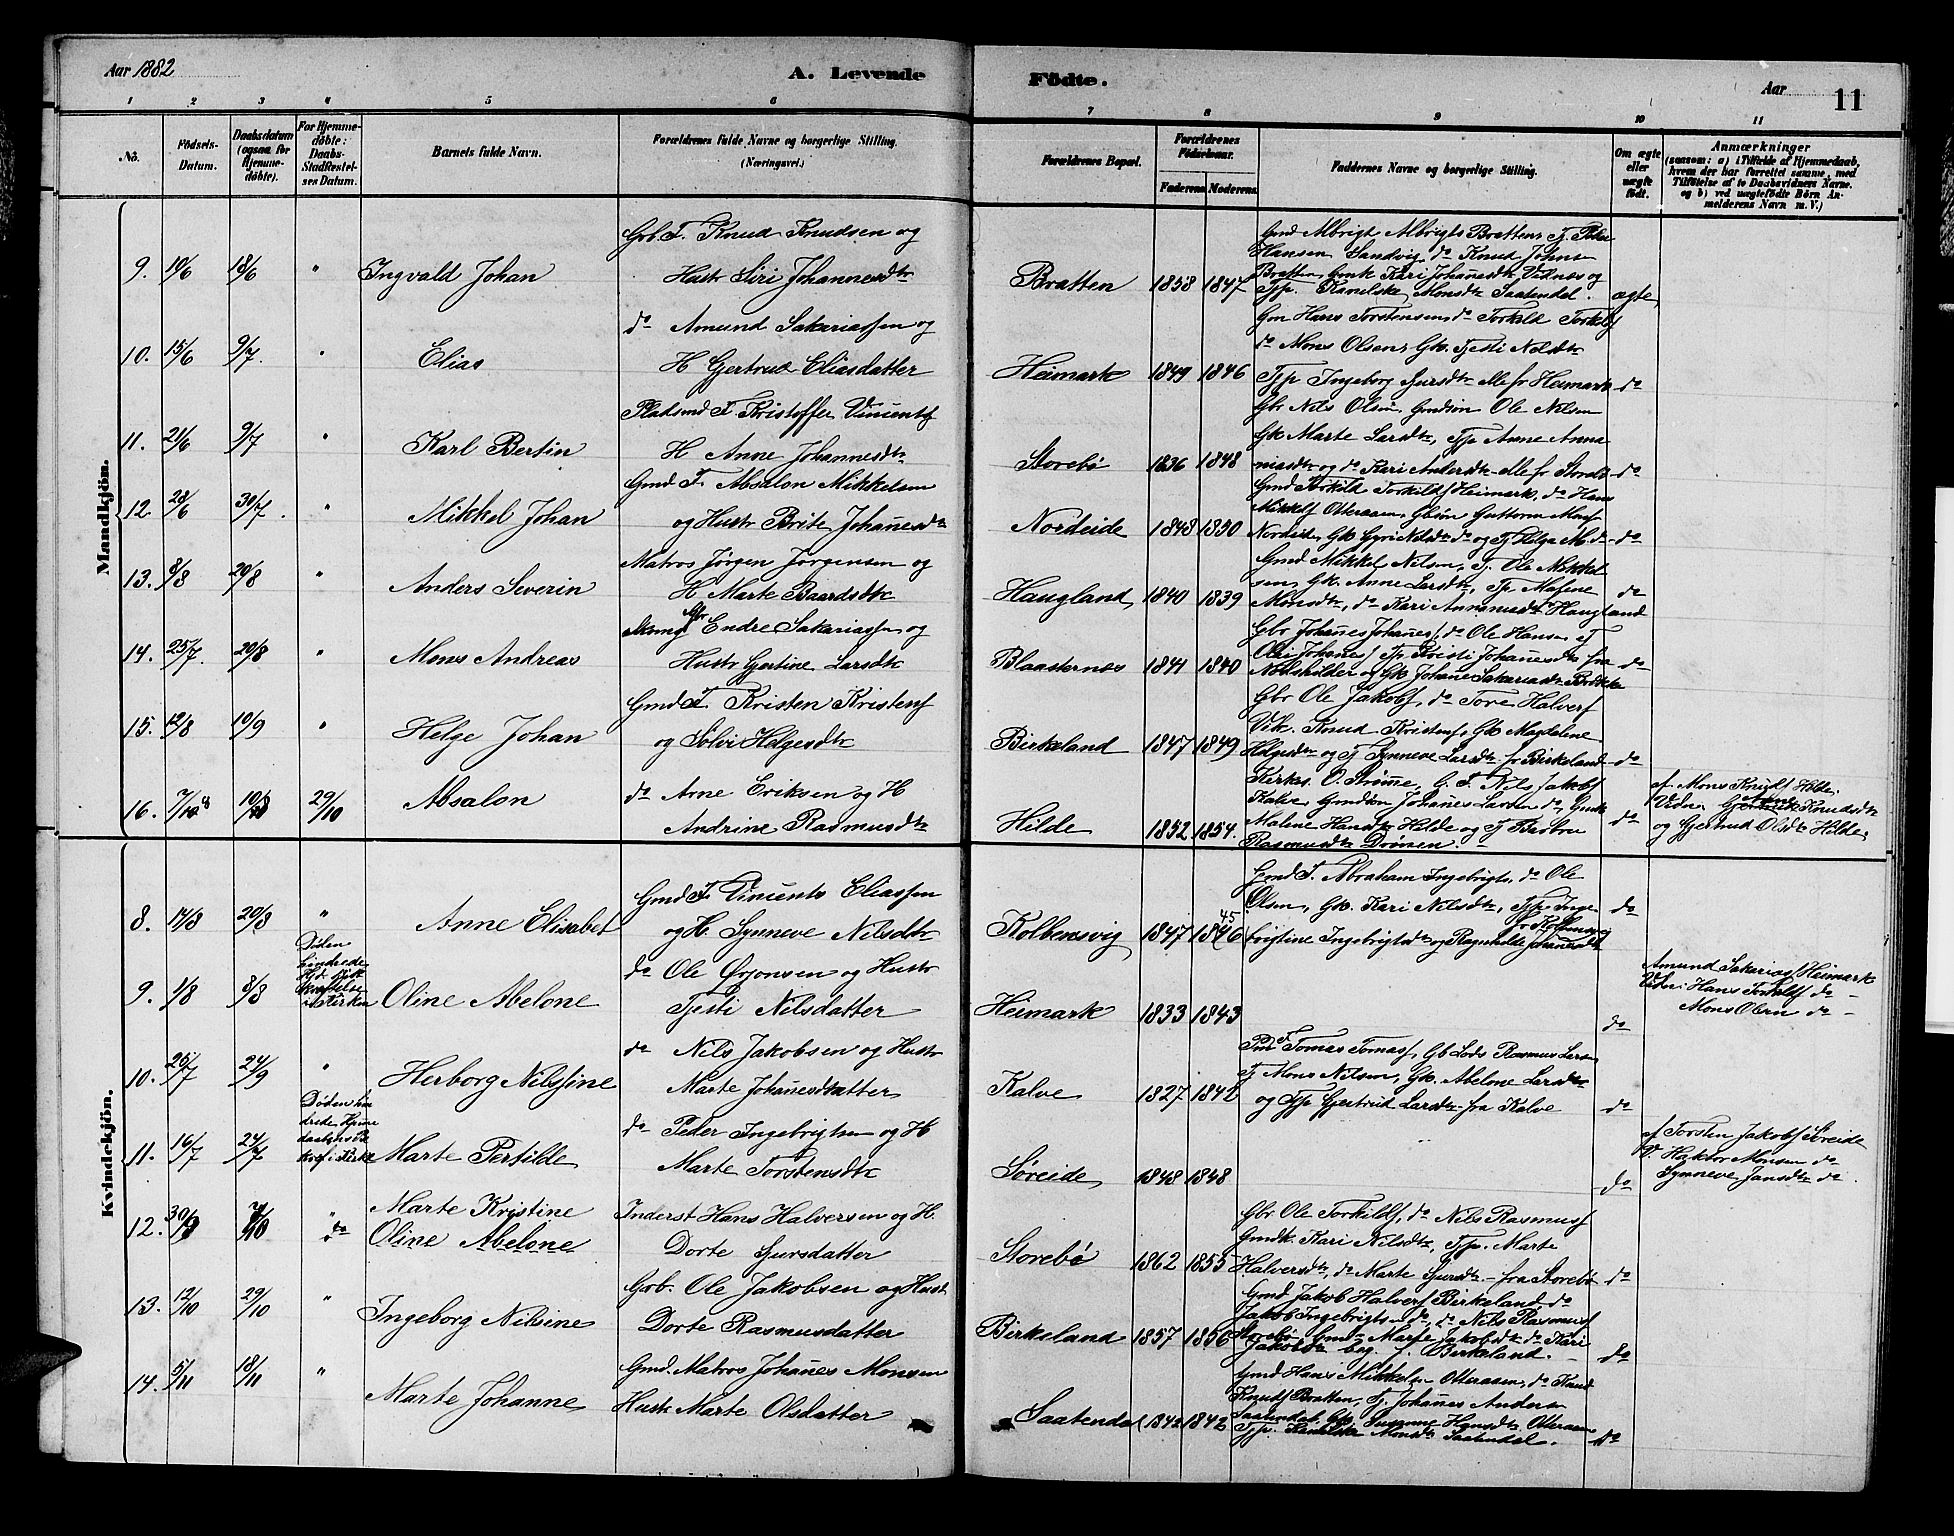 Aar 1882
A. Levende
Födte.
Aar
11
1 2 3 4 5 6 7 8 9 10 11
No.
Födsels-
Datum.
Daabsdatum
(ogsaa for
Hjemme-
döbte).
For Hjemme-
döbte:
Daabs-
Stadfæstel-
ses Datum.
Barnets fulde Navn.
Forældrenes fulde Navne og borgerlige Stilling.
(Næringsvei.)
Forældrenes Bopæl.
Forældrenes
Födselsaar.
Faderens Moderens
Faddernes Navne og borgerlige Stilling.
Om ægte
eller
uægte
födt.
Anmærkninger
(saasom: a) i Tilfælde af Hjemmedaab,
hvem der har forrettet samme, med
Tilföielse af to Daabsvidners Navne.
og b) ved uægtefödte Börn An-
melderens Navn m. V.)
Mandkjön.
9. 19/6 18/6 " Ingvald Johan
Gbr. F. Knud Knudsen og
Hustr Siri Johannesdtr
Bratten 1858 1847
Gmd Albrigt Albrigts Bratten, Tj. Peder
Hansen Sandvig, do Knud Johns
Bratten, Gmk Kari Johannesdtr Vidnæs og
Tjp. Kanelske Monsdtr Saatendal.
ægte
10. 15/6 9/7. " Elias
do Amund Sakariassen og
H Gjertrud Eliasdatter
Heimark 1849 1846
Gm Hans Torstensen, do Torkild Torkilds
do Mons Olsen, Gk. Tjesti Nilsdtr
Tjp Ingeborg Sjursdtr alle fr Heimark
do
11. 21/6 9/7 " Karl Bertin
Pladsmd F. Kristoffer Vincents
H Anne Johannesdtr
Storebö 1836 1848
Gbr Nils Olsen, Gmdsön Ole Nilsen
Gk Marte Larsdtr, Tjp Anne Anna
niasdtr og do Kari Andersdtr alle fr Storebö
do
12. 28/6 30/7. " Mikkel Johan
Gmd F. Absalon Mikkelsen
og Hustr Brite Johanesdtr
Nordeide 1848 1850
Gmd Torkild Torkilds Heimark, do Hans
Mikkels Otteraaen, Gbsön Guttorm Mons
Nordeide, Gk Gyri Nilsdtr do og Tj Helga M. do
do
13. 8/8 20/8 " Anders Severin
Matros Jørgen Jørgensen og
H Marte Baardsdtr
Haugland 1840 1839
Gmd Mikkel Nilsen, Tj. Ole Mikkel
sen, Gk. Anne Larsdtr, Tjp
Monsdtr, do Kari Haugland
do
14. 25/7. 20/8 " Mons Andreas
Endre Sakariassen og
Hustr Gjertine Larsdtr
Blaasternæs 1841 1840
Gbr Johanes Johanes, do Ole Hansen, Tj
Johanes, Tjp. Kristi Johanesdtr fra
og Gk Johane Sakariasdtr
do
15. 12/8 10/9 " Helge Johan
Gmd F. Kristen Kristens
og Sølvi Helgesdtr
Birkeland 1847 1849
Gbr Ole Jakobs, do Tore Halvers
Vik. Knud Kristens, Gk Magdelene
Helgesdtr og Tj Synneve Larsdtr fr Birkeland
do
16. 7/8 10/8 29/10 Absalon
do Arne Eriksen og H
Andrine Rasmusdtr
Hilde 1852 1854.
Kirkes. O. Strømme, G. F. Nils Jakobs
Kalve, Gmdsön Johanes Larsen do, Gmk
Malene Hansdtr Hilde og Tj
Rasmusdtr Drönen.
do
af Mons Knuds Hilde.
Vidn: Knudsdtr
og Gjertrud Olsdtr Hilde.
Kvindekjön.
8. 14/8 20/8 " Anne Elisabet
Gmd F. Vincents Eliassen
og H. Synneve Nilsdtr
Kolbensvig 1847 1846 45
Gmd F. Abraham Ingebrigts, do Ole
Olsen, Gk. Kari Nilsdtr, Tjp. Inge
fr Kolbensvig
Kristine Ingebrigtsdtr og Ragnhilde Johanesdtr
do
9. 1/8 8/8 Døden
hindrede
i Kirken
Oline Abelone
do Ole Ørjonsen og Hustr
Tjesti Nilsdatter
Heimark 1833 1843
do
Amund Sakarias Heimark
Vidn: Hans Torkilds do
Mons Olsen do
10. 25/7 24/9 " Herborg Nilsine
do Nils Jakobsen og Hustr
Marte Johanesdatter
Kalve 1827 1842
Pm F Tomas Tomass, Gb Lods Rasmus Larsen
Tj Mons Nilsen, Gk. Abelone Larsdtr
og Tjp Gjertrud Larsdtr fra Kalve
do
11. 16/7 24/7 Døden hin
drede Hjme
daabens Be
kræf i Kirke
Marte Pertilde
do Peder Ingebrigtsen og H
Marte Torstensdtr
Søreide 1848 1848
do
af Torsten Jakobs Søreide
V. Haktor Monsen do
Synneve Jansdtr do.
12. 30/9 "
do
Marte Kristine
Oline Abelone
Inderst Hans Halversen og H.
Dorte Sjursdatter
Storebö 1862 1855
Gbr Ole Torkilds, do Nils Rasmus
Gmdk. Kari Nilsdtr, Tjp. Marte
Halversdtr, do Marte Sjursdtr fra Storebö
do
13. 12/10 29/10 " Ingeborg Nilsine
Gbr. Ole Jakobsen og Hust.
Dorte Rasmusdatter
Birkeland 1857 1856
Gmd Jakob Halvers Birkeland do
Jakob Ingebrigtsen do, do Nils Rasmus
Storebö Gmd Marte Jakobsdtr do Kari
Jakobsdtr beg. f. Birkeland.
do
14. 5/11 18/11 " Marte Johanne
Gmd. Matros Johanes Monsen
Hustr Marte Olsdatter
Saatendal 1842 1842
Gmd Hans Mikkelsen Otteraaen, do Knud
Knuds Bratten, Tj. Johanes Anders
Saatendal, Gk. Susanne Hansdtr Otteraaen
Tjp. Kanelske Monsdtr Saatendal.
do